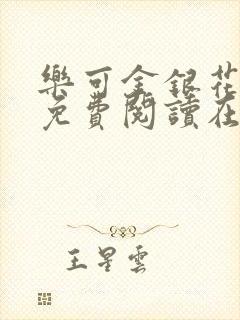 樂可金銀花
免費閱讀在
王星雲